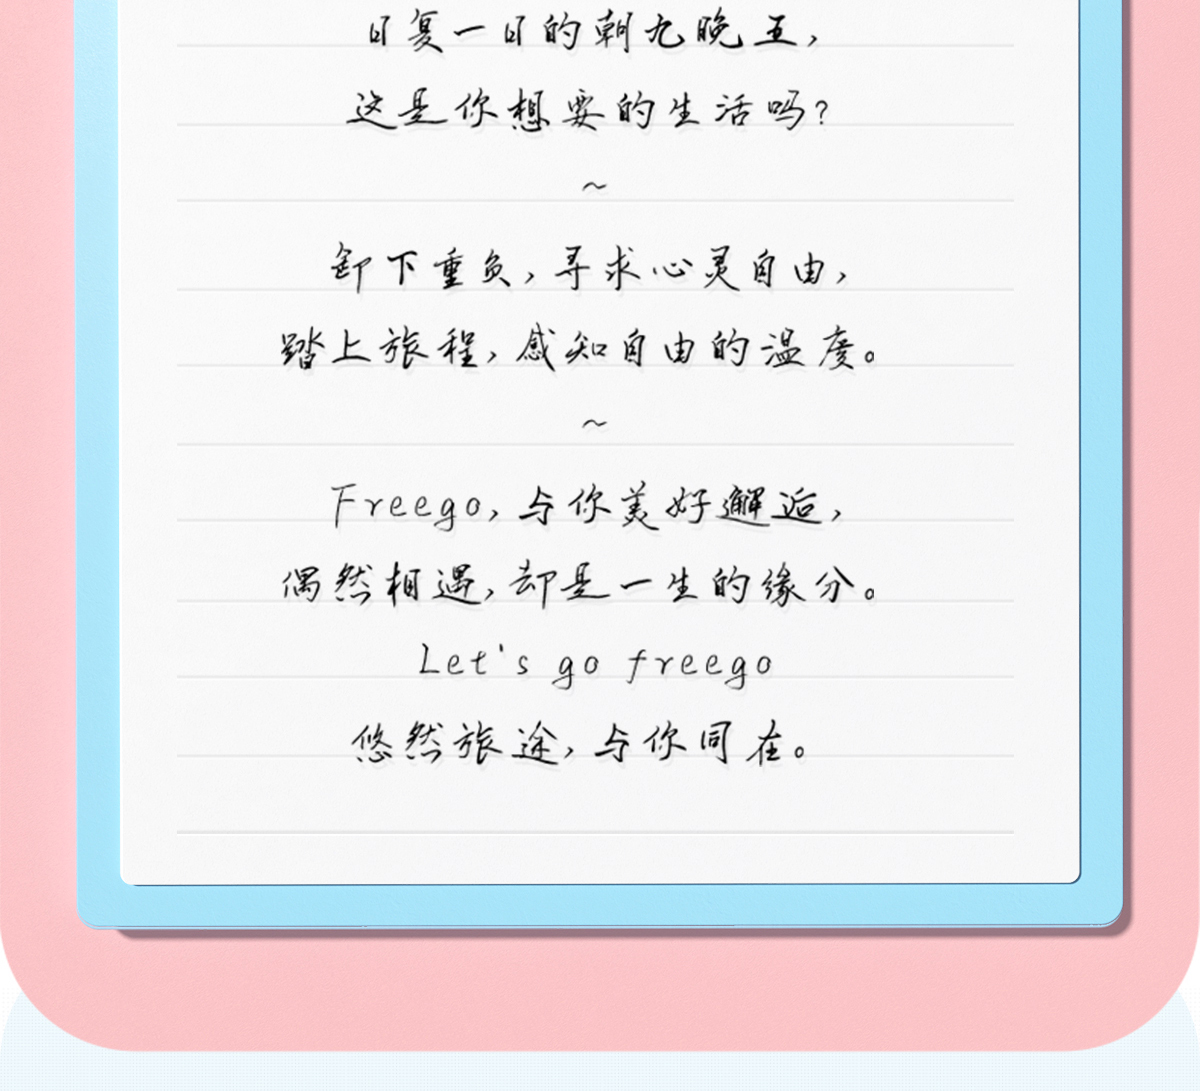 日复一日的朝九晚五，
这是你想要的生活吗？
~
卸下重负，寻求心灵自由，
踏上旅程，感知自由的温度。
~
Freego，与你美好邂逅，
偶然相遇，却是一生的缘分。
Let's go freego
悠然旅途，与你同在。